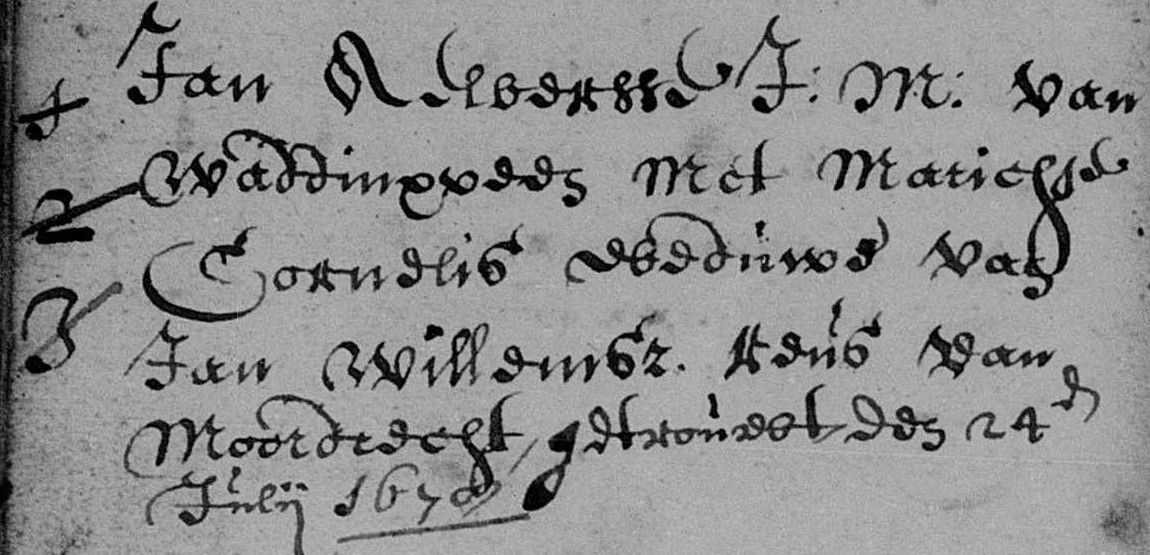 1 Jan Albertsse J: M: van
2 Waddinxveen Met Marichje
Cornelis Weduwe van
3 Jan Willemsz. Reus van
Moordrecht, getrouwt den 24en
Julij 1670